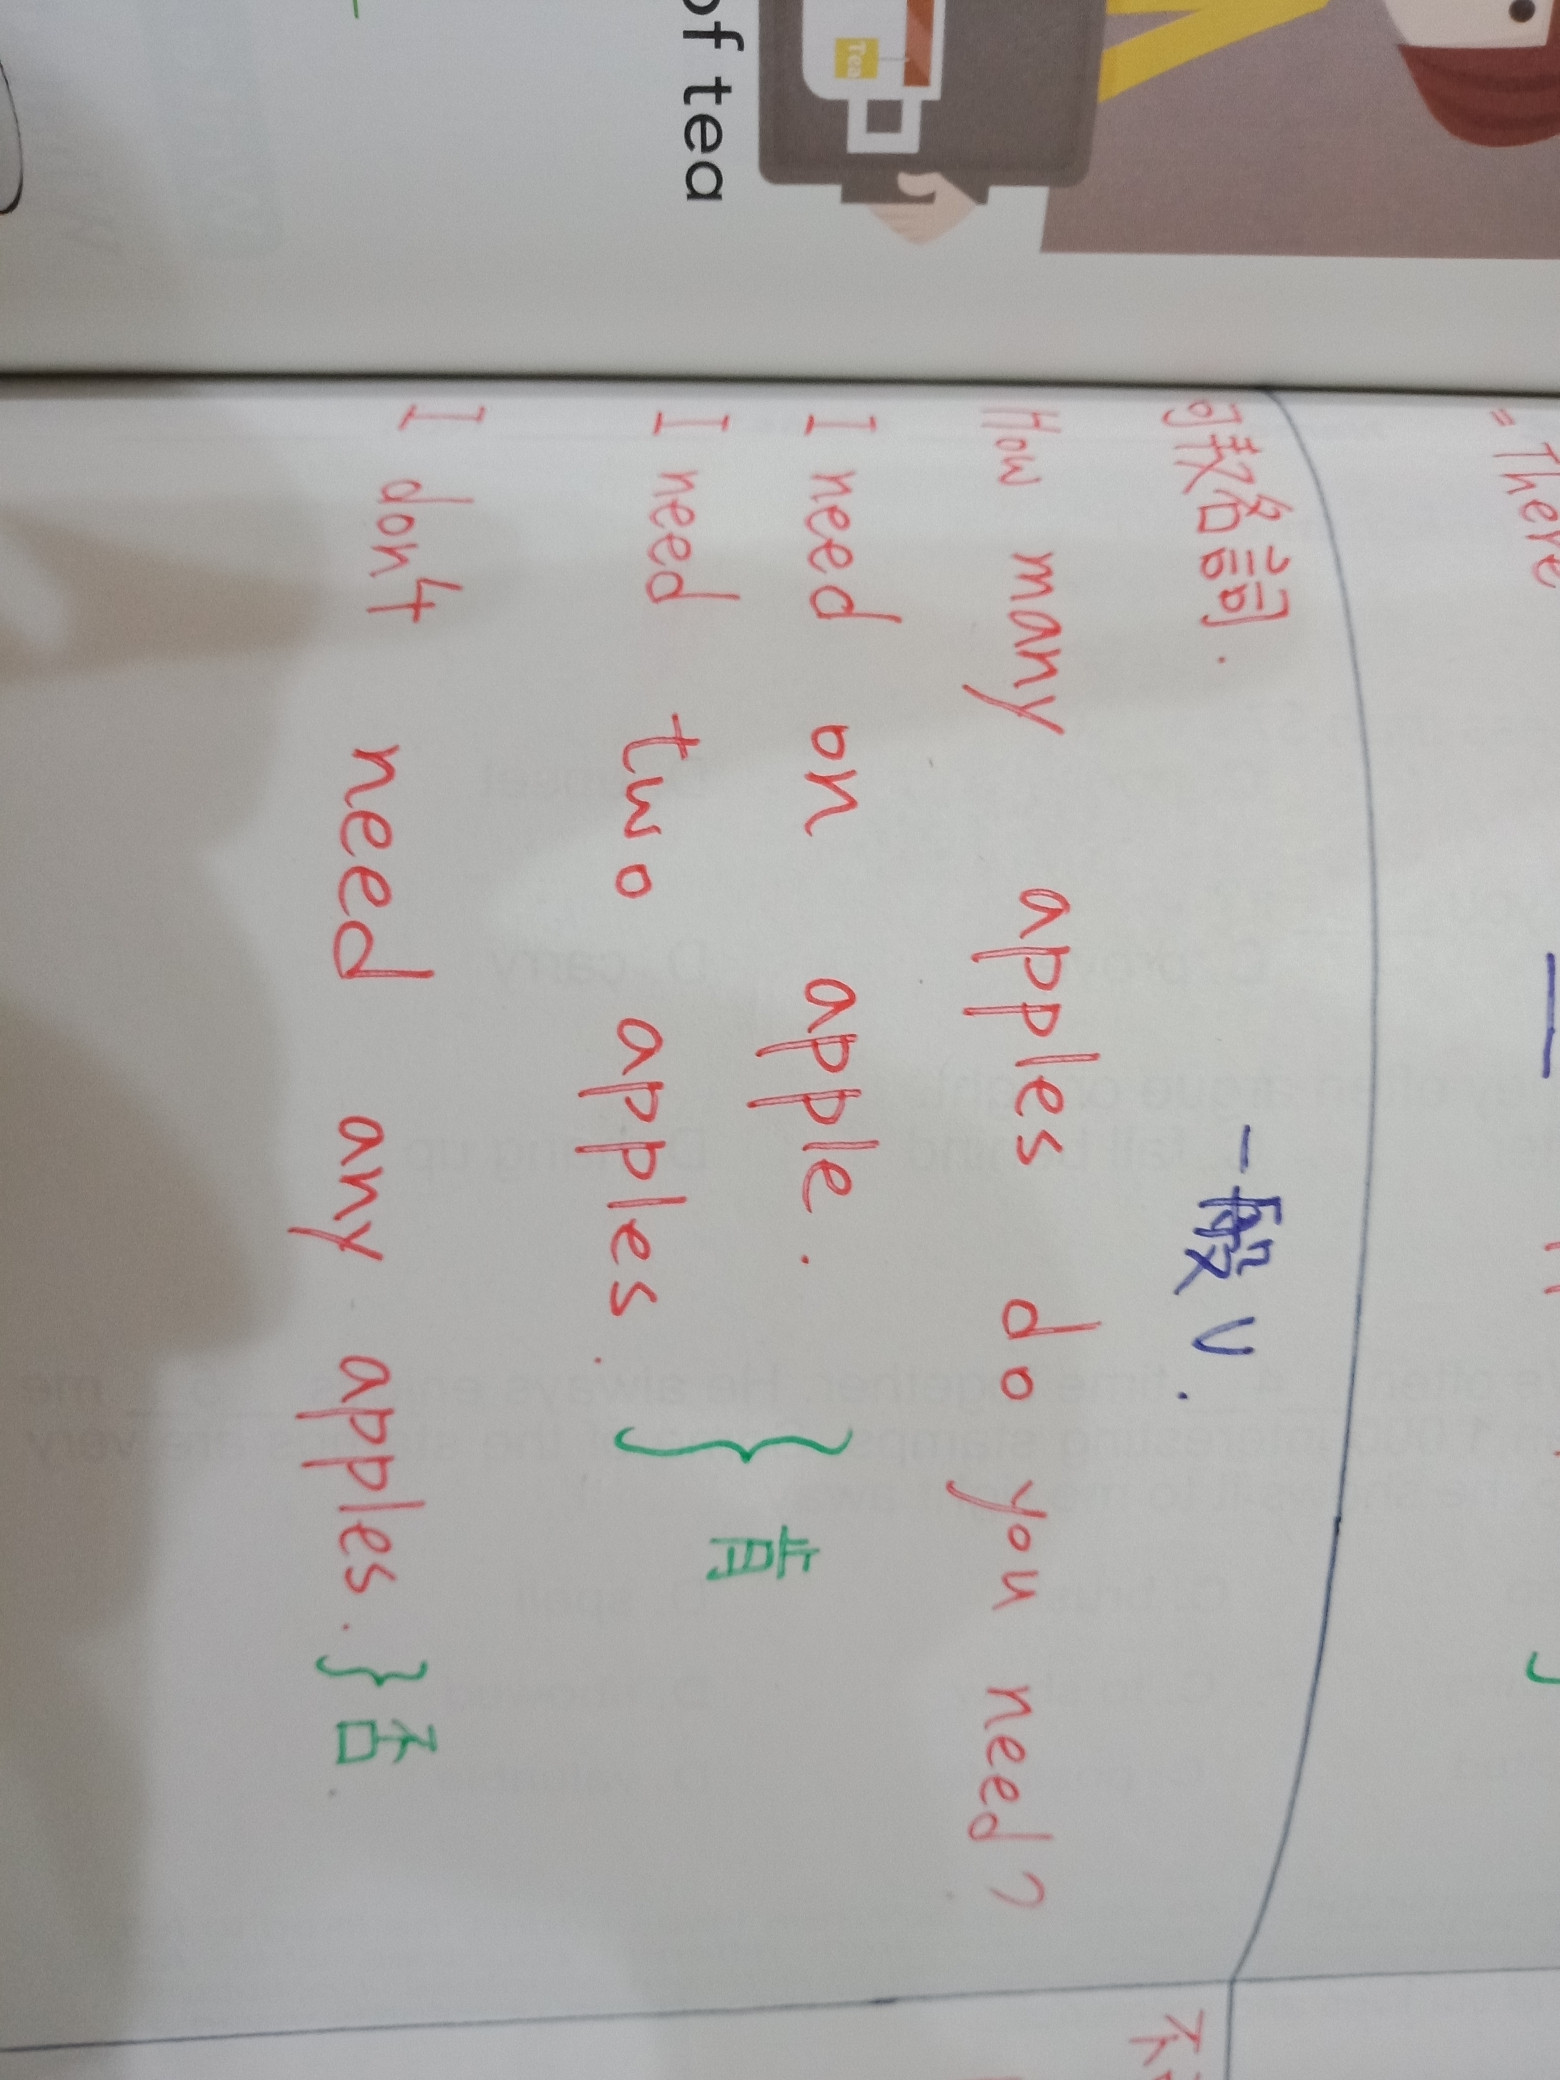 of tea
Tea
= There
可数名詞.
一般 V.
How many apples do you need?
I need on apple.
I need two apples.
} 肯
I don't need any apples. } 否